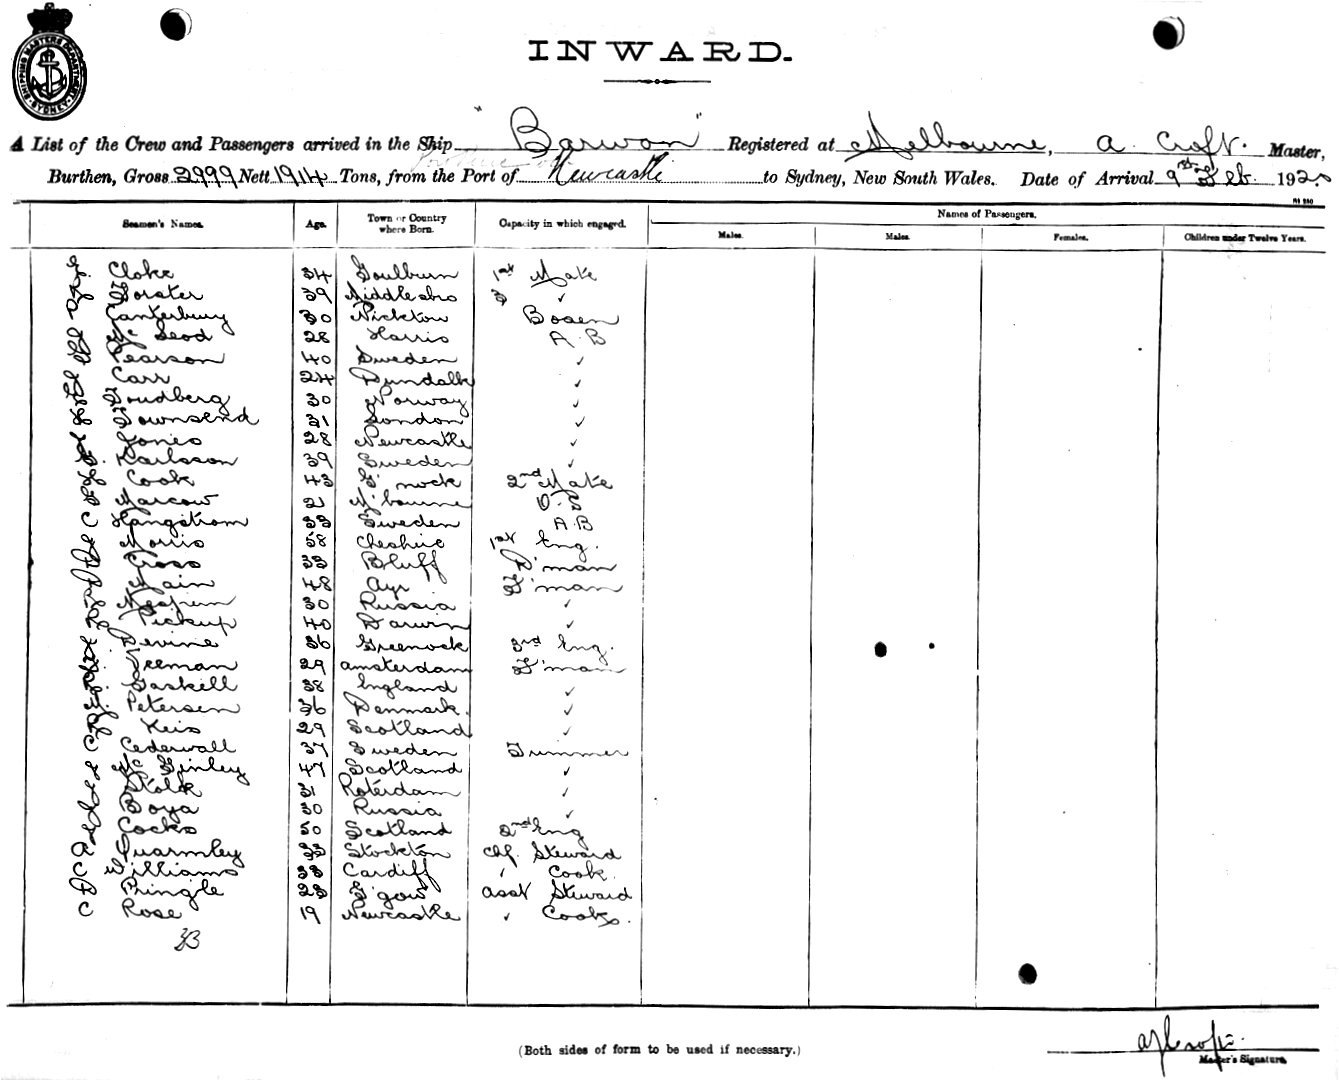 SHIPPING MASTERS DEPARTMENT SYDNEY
INWARD.
A List of the Crew and Passengers arrived in the Ship "Barwon" Registered at Melbourne, A. Croft. Master,
Burthen, Gross 2999 Nett 1914 Tons, from the Port of Newcastle to Sydney, New South Wales. Date of Arrival 9 Feb. 192
Seamen's Names. Age. Town or Country where Born. Capacity in which engaged. Names of Passengers.
Males. Males. Females. Children under Twelve Years.
Cloke 34 Goulburn 1st Mate
Forster 39 Middlesbro 3 ✓
Canterbury 30 Bosen
McLeod 28 Harris A.B
Pearson 40 Sweden ✓
Carr 24 Dundalk ✓
Soudberg 30 Norway ✓
Townsend 31 London ✓
Jones 28 Newcastle ✓
Karlsson 39 Sweden ✓
Cook 43 G'nock 2nd Mate
Marcow 21 M'bourne O.S
Hangstrom 33 Sweden A B
Morris 58 Cheshire 1st Eng.
Cross 33 Bluff D'man
Main 48 Ayr F'man
30 Russia ✓
Pickup 40 Darwin ✓
Devine 36 Greenock 3rd Eng.
Veeman 29 Amsterdam F'man
Gaskell 38 England ✓
Petersen 36 Denmark ✓
Keis 29 Scotland ✓
Cederwall 37 Sweden Trimmer
McGinley 47 Scotland ✓
Stolk 31 Roterdam ✓
Boya 30 Russia ✓
Cocks 50 Scotland 2nd Eng
Quarmley 33 Stockton Chf. Steward
Williams 38 Cardiff " Cook
Pringle 23 G'gow Asst Steward
Rose 19 Newcastle " Cook.
33
(Both sides of form to be used if necessary.)
Master's Signature.